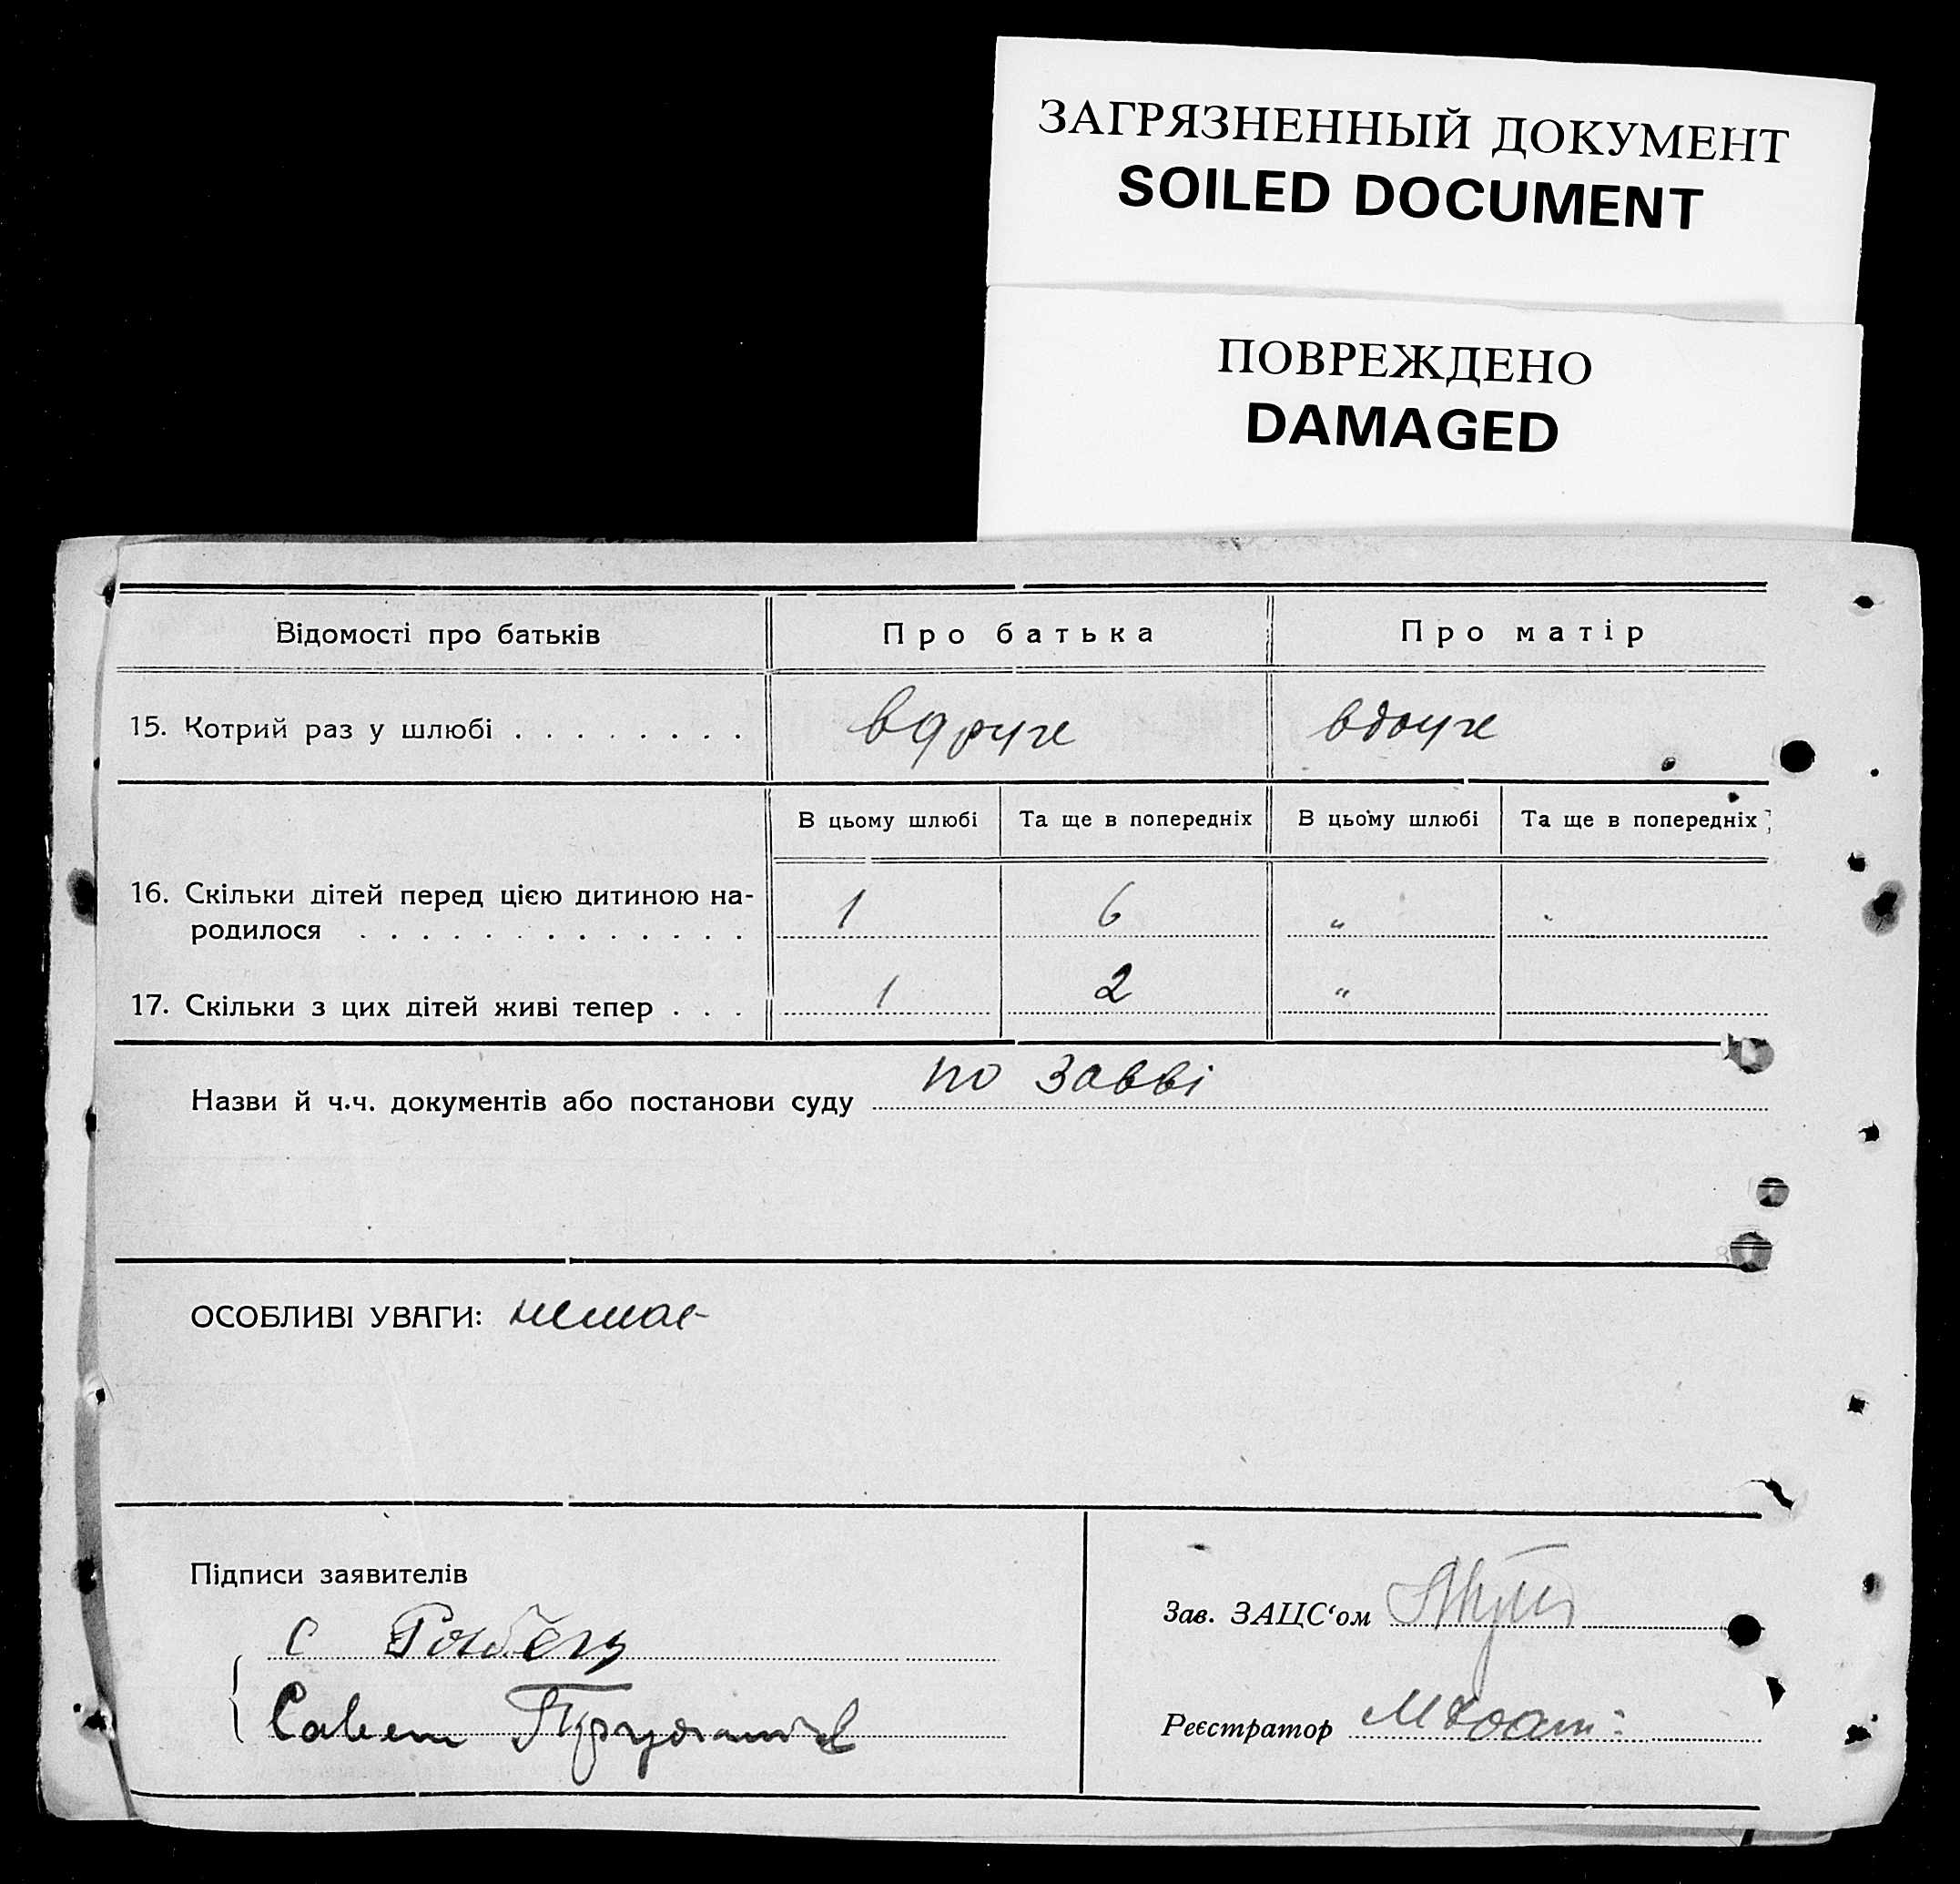 ЗАГРЯЗНЕННЫЙ ДОКУМЕНТ
SOILED DOCUMENT
ПОВРЕЖДЕНО
DAMAGED
Відомості про батьків Про батька Про матір
15. Котрий раз у шлюбі . . . . . . . . вдруге вдруге
В цьому шлюбі Та ще в попередніх В цьому шлюбі Та ще в попередніх
16. Скільки дітей перед цією дитиною на-
родилося . . . . . . . . . . . . . 1 6 "
17. Скільки з цих дітей живі тепер . . . 1 2 "
Назви й ч.ч. документів або постанови суду по заяві
ОСОБЛИВІ УВАГИ: немає
Підписи заявителів
Зав. ЗАЦС'ом
С
Реєстратор